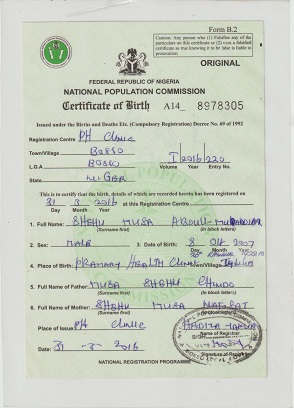 Form B.2
Caution: Any person who (1) Falsifies any of the
particulars on this certificate or (2) uses a falsified
certificate as true knowing it to be false is liable to
prosecution
ORIGINAL
FEDERAL REPUBLIC OF NIGERIA
NATIONAL POPULATION COMMISSION
Certificate of Birth A14 8978305
Issued under the Births and Deaths Etc. (Compulsory Registration) Decree No. 69 of 1992
Registration Centre PH Clinic
Town/Village BOSSO
L.G.A BOSSO I 2016 220
Volume Year Entry No.
State NIGER
This is to certify that the birth, details of which are recorded herein has been registered on
31 3 2016 at this Registration Centre
Day Month Year
1. Full Name: SHEHU MUSA ABDUL-
(Surname first) (in block letters)
2. Sex: MALE 3. Date of Birth: 8 2007
Day Month Year
4. Place of Birth: PRIMARY HEALTH
Town/Village
5. Full Name of Father MUSA SHEHU
(Surname first) (in block letters)
6. Full Name of Mother: SHEHU MUSA
(Surname first)
Place of Issue PH Clinic
Name of Registrar
Date: 31 - 3 - 2016
Signature of Registrar
NATIONAL REGISTRATION PROGRAMME